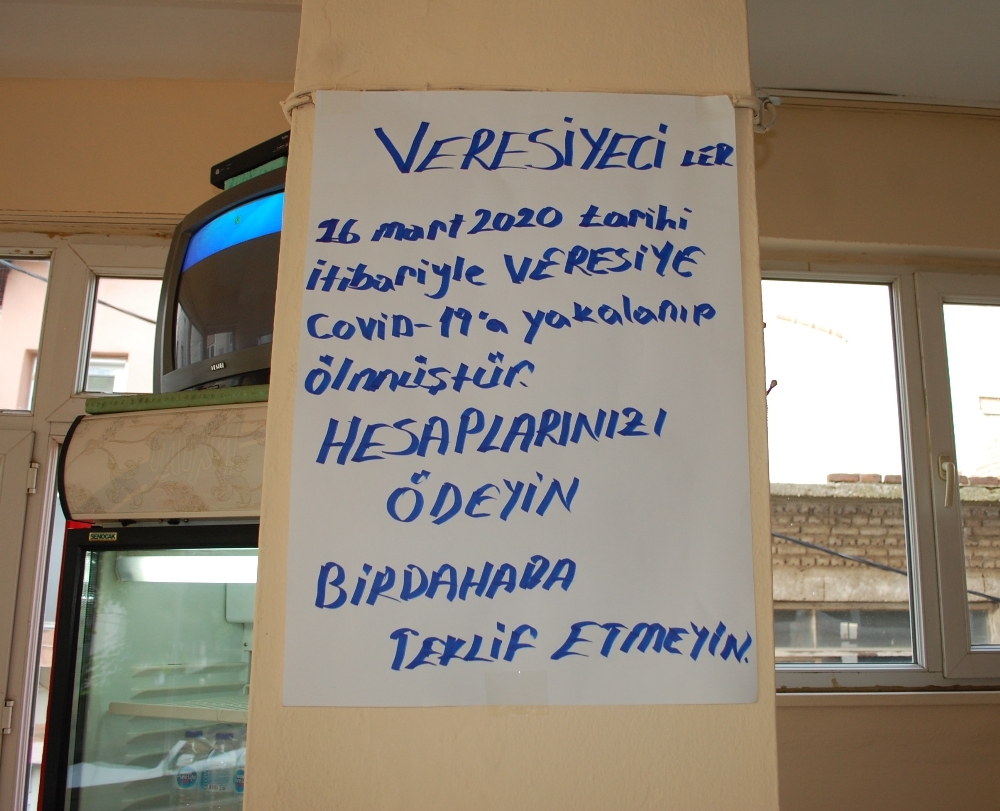 VERESİYECİ LER
16 mart 2020 tarihi
itibariyle VERESİYE
COVİD-19'a yakalanıp
ölmüştür.
HESAPLARINIZI
ÖDEYİN
BİRDAHADA
TEKLİF ETMEYİN.
VESTEL
SENOCAK